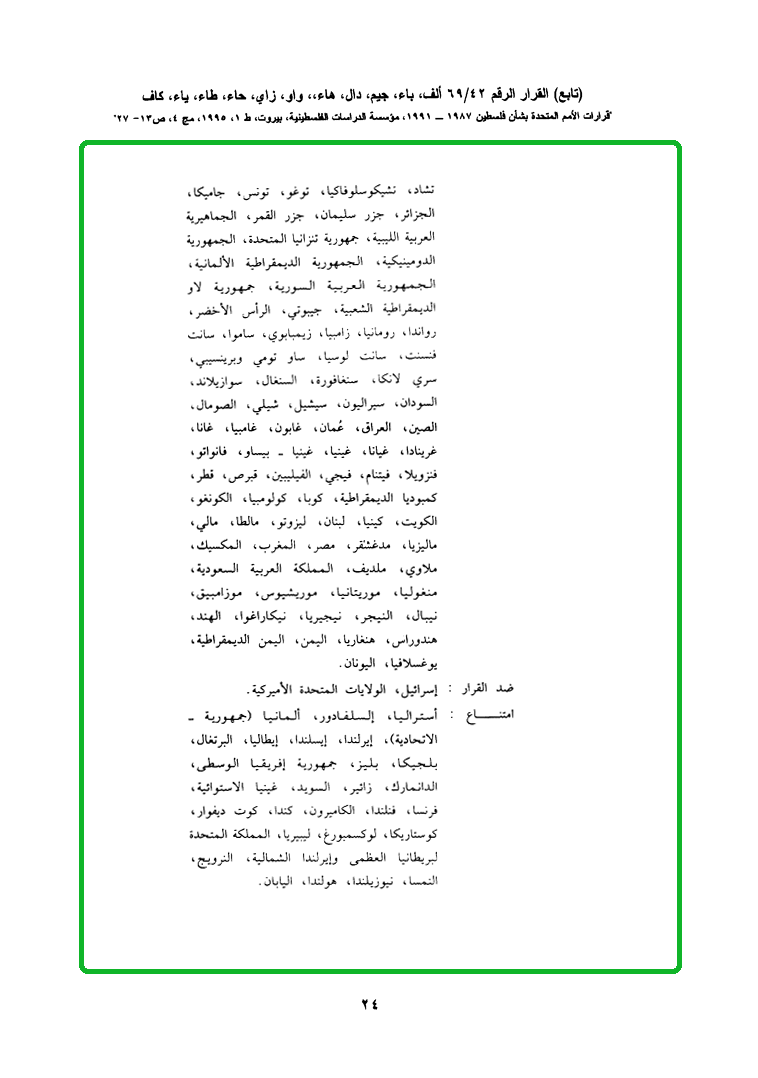 (تابع) القرار الرقم ٦٩/٤٢ ألف، باء، جيم، دال، هاء،، واو، زاي، حاء، طاء، ياء، كاف
"قرارات الأمم المتحدة بشأن فلسطين ١٩٨٧ ــ ١٩٩١، مؤسسة الدراسات الفلسطينية، بيروت، ط ١، ١٩٩٥، مج ٤، ص١٣- ٢٧"
تشاد، تشيكوسلوفاكيا، توغو، تونس، جاميكا،
الجزائر، جزر سليمان، جزر القمر، الجماهيرية
العربية الليبية، جمهورية تنزانيا المتحدة، الجمهورية
الدومينيكية، الجمهورية الديمقراطية الألمانية،
الجمهورية العربية السورية، جمهورية لاو
الديمقراطية الشعبية، جيبوتي، الرأس الأخضر،
رواندا، رومانيا، زامبيا، زيمبابوي، ساموا، سانت
فنسنت، سانت لوسيا، ساو تومي وبرينسيبي،
سري لانكا، سنغافورة، السنغال، سوازيلاند،
السودان، سيراليون، سيشيل، شيلي، الصومال،
الصين، العراق، عُمان، غابون، غامبيا، غانا،
غرينادا، غيانا، غينيا، غينيا ـ بيساو، فانواتو،
فنزويلا، فيتنام، فيجي، الفيليبين، قبرص، قطر،
كمبوديا الديمقراطية، كوبا، كولومبيا، الكونغو،
الكويت، كينيا، لبنان، ليزوتو، مالطا، مالي،
ماليزيا، مدغشقر، مصر، المغرب، المكسيك،
ملاوي، ملديف، المملكة العربية السعودية،
منغوليا، موريتانيا، موريشيوس، موزامبيق،
نيبال، النيجر، نيجيريا، نيكاراغوا، الهند،
هندوراس، هنغاريا، اليمن، اليمن الديمقراطية،
يوغسلافيا، اليونان.
ضد القرار : إسرائيل، الولايات المتحدة الأميركية.
امتنـــــاع : أستراليا، إلسلفادور، ألمانيا (جمهورية ـ
الاتحادية)، إيرلندا، إيسلندا، إيطاليا، البرتغال،
بلجيكا، بليز، جمهورية إفريقيا الوسطى،
الدانمارك، زائير، السويد، غينيا الاستوائية،
فرنسا، فنلندا، الكاميرون، كندا، كوت ديفوار،
كوستاريكا، لوكسمبورغ، ليبيريا، المملكة المتحدة
لبريطانيا العظمى وإيرلندا الشمالية، النرويج،
النمسا، نيوزيلندا، هولندا، اليابان.
٢٤